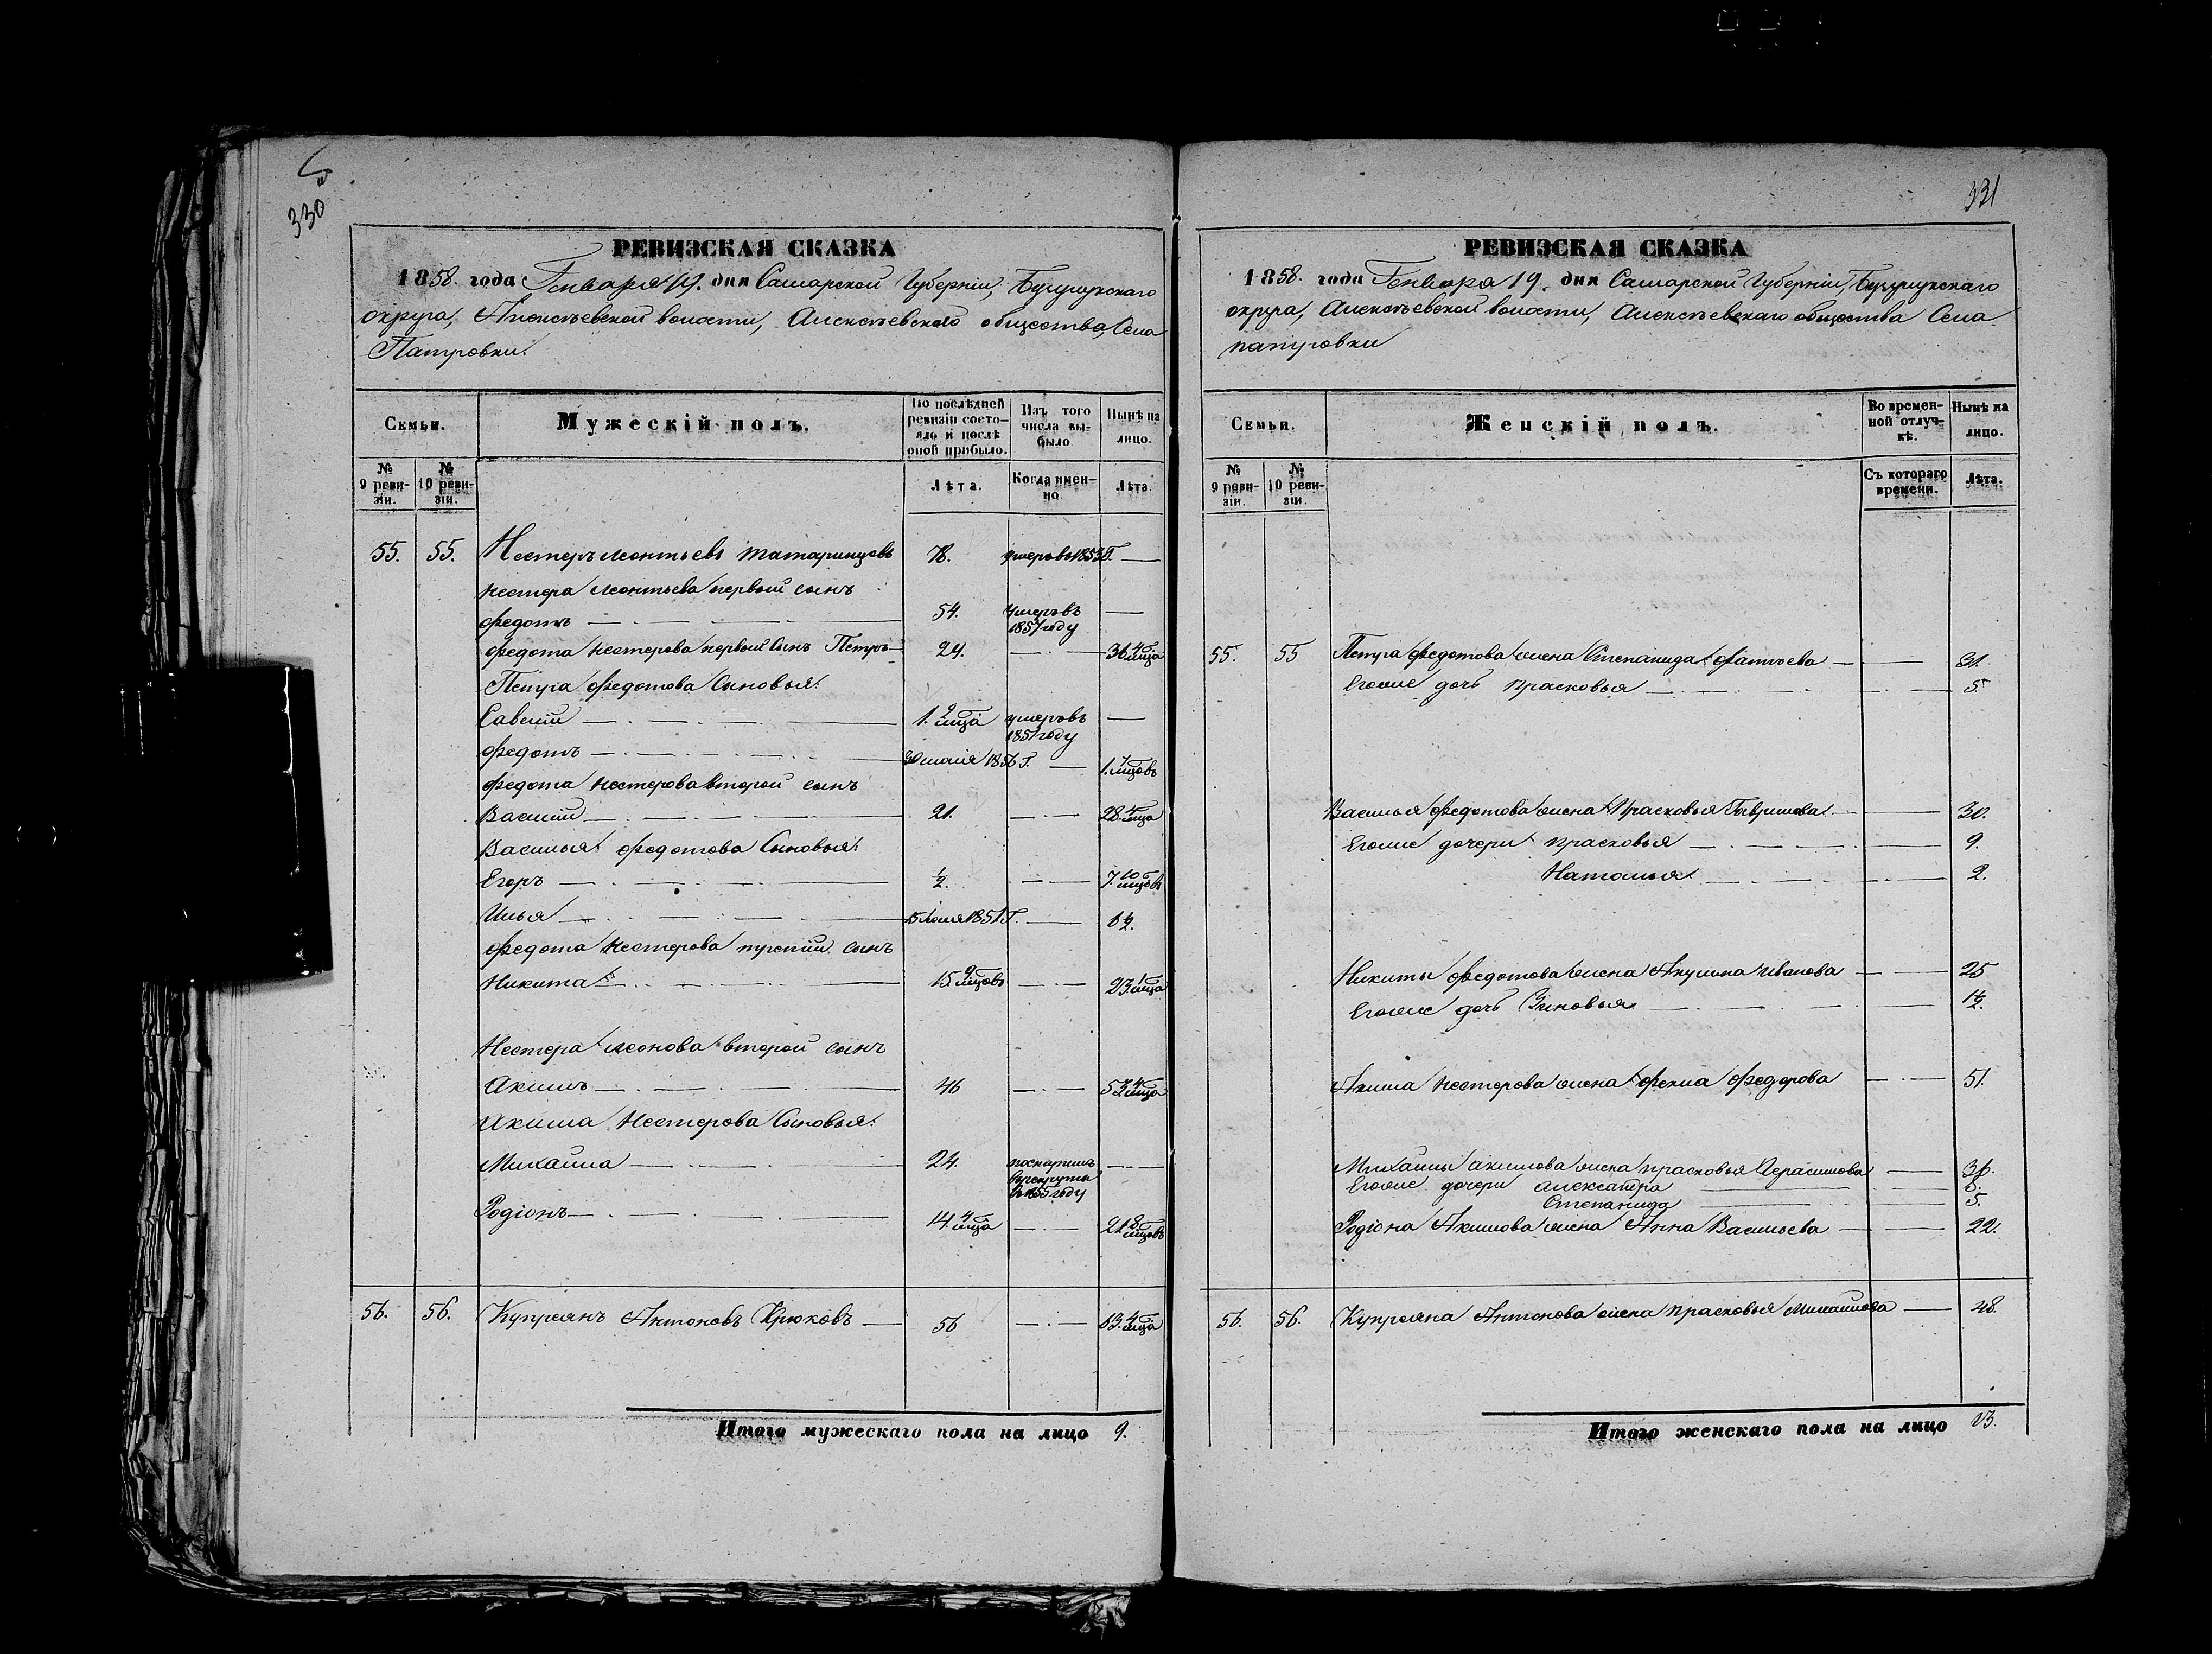 330
РЕВИЗСКАЯ СКАЗКА
1858. года Генваря 19. дня Самарской Губернiи, Бузулукскаго
округа, Алексѣевской волости, Алексѣевскаго общества, Села
Патровки.
Семьи.
Мужескiй полъ.
По послѣдней ревизiи состояло и послѣ оной прибыло.
Изъ того числа выбыло
Нынѣ на лицо.
№ 9 ревизiи.
№ 10 ревизiи.
Лѣта.
Когда именно
Лѣта.
55. 55. Нестеръ Леонтьевъ Татаринцовъ 78. умеръ въ 1853 Г. —
Нестера Леонтьева первый сынъ
Федотъ — 54. умеръ въ 1857 году —
Федота Нестерова первый сынъ Петръ — 29. — 36. 4 мца
Петра Федотова Сыновья:
Савелiй — 1. 2 мца умеръ въ 1851 году —
Федотъ — 30 маiя 1856 Г. — 1. 7 мцовъ
Федота Нестерова второй сынъ
Василiй — 21. — 28. 4 мца
Василья Федотова Сыновья:
Егоръ — ½. — 7. 10 мцовъ
Илья — 15 Iюля 1851 Г. — 6½.
Федота Нестерова третiй сынъ
Никита — 15. 9 мцовъ — 23. 1 мца
Нестера Леонова второй сынъ
Акимъ — 46 — 53. 4 мца
Акима Нестерова Сыновья:
Михайла — 24. поступилъ в рекруты в 1855 году —
Родiонъ — 14. 4 мца — 21. 8 мцовъ
56. 56. Купреянъ Антоновъ Крюковъ — 56 — 63. 4 мца
Итого мужескаго пола на лицо 9.
331
РЕВИЗСКАЯ СКАЗКА
1858. года Генваря 19. дня Самарской Губернiи, Бузулукскаго
округа, Алексѣевской волости, Алексѣевскаго общества Села
Патровки
Семьи.
Женскiй полъ.
Во временной отлучкѣ.
Нынѣ на лицо.
№ 9 ревизiи.
№ 10 ревизiи.
Съ котораго времени.
Лѣта.
55. 55 Петра Федотова жена Степанида Фатѣева — 31.
Егоже дочь Прасковья — 5
Василья Федотова жена Прасковья Гаврилова — 30.
Егоже дочери Прасковья — 9.
Наталья — 2.
Никиты Федотова жена Акулина Иванова — 25
Егоже дочь Зиновья — 1½.
Акима Нестерова жена Фекла Федорова — 51.
Михайлы Акимова жена Прасковья Герасимова — 36.
Егоже дочери Александра — 8.
Степанида — 5.
Родiона Акимова жена Анна Васильева — 22.
56. 56. Купреяна Антонова жена Прасковья Михайлова — 48.
Итого женскаго пола на лицо 13.